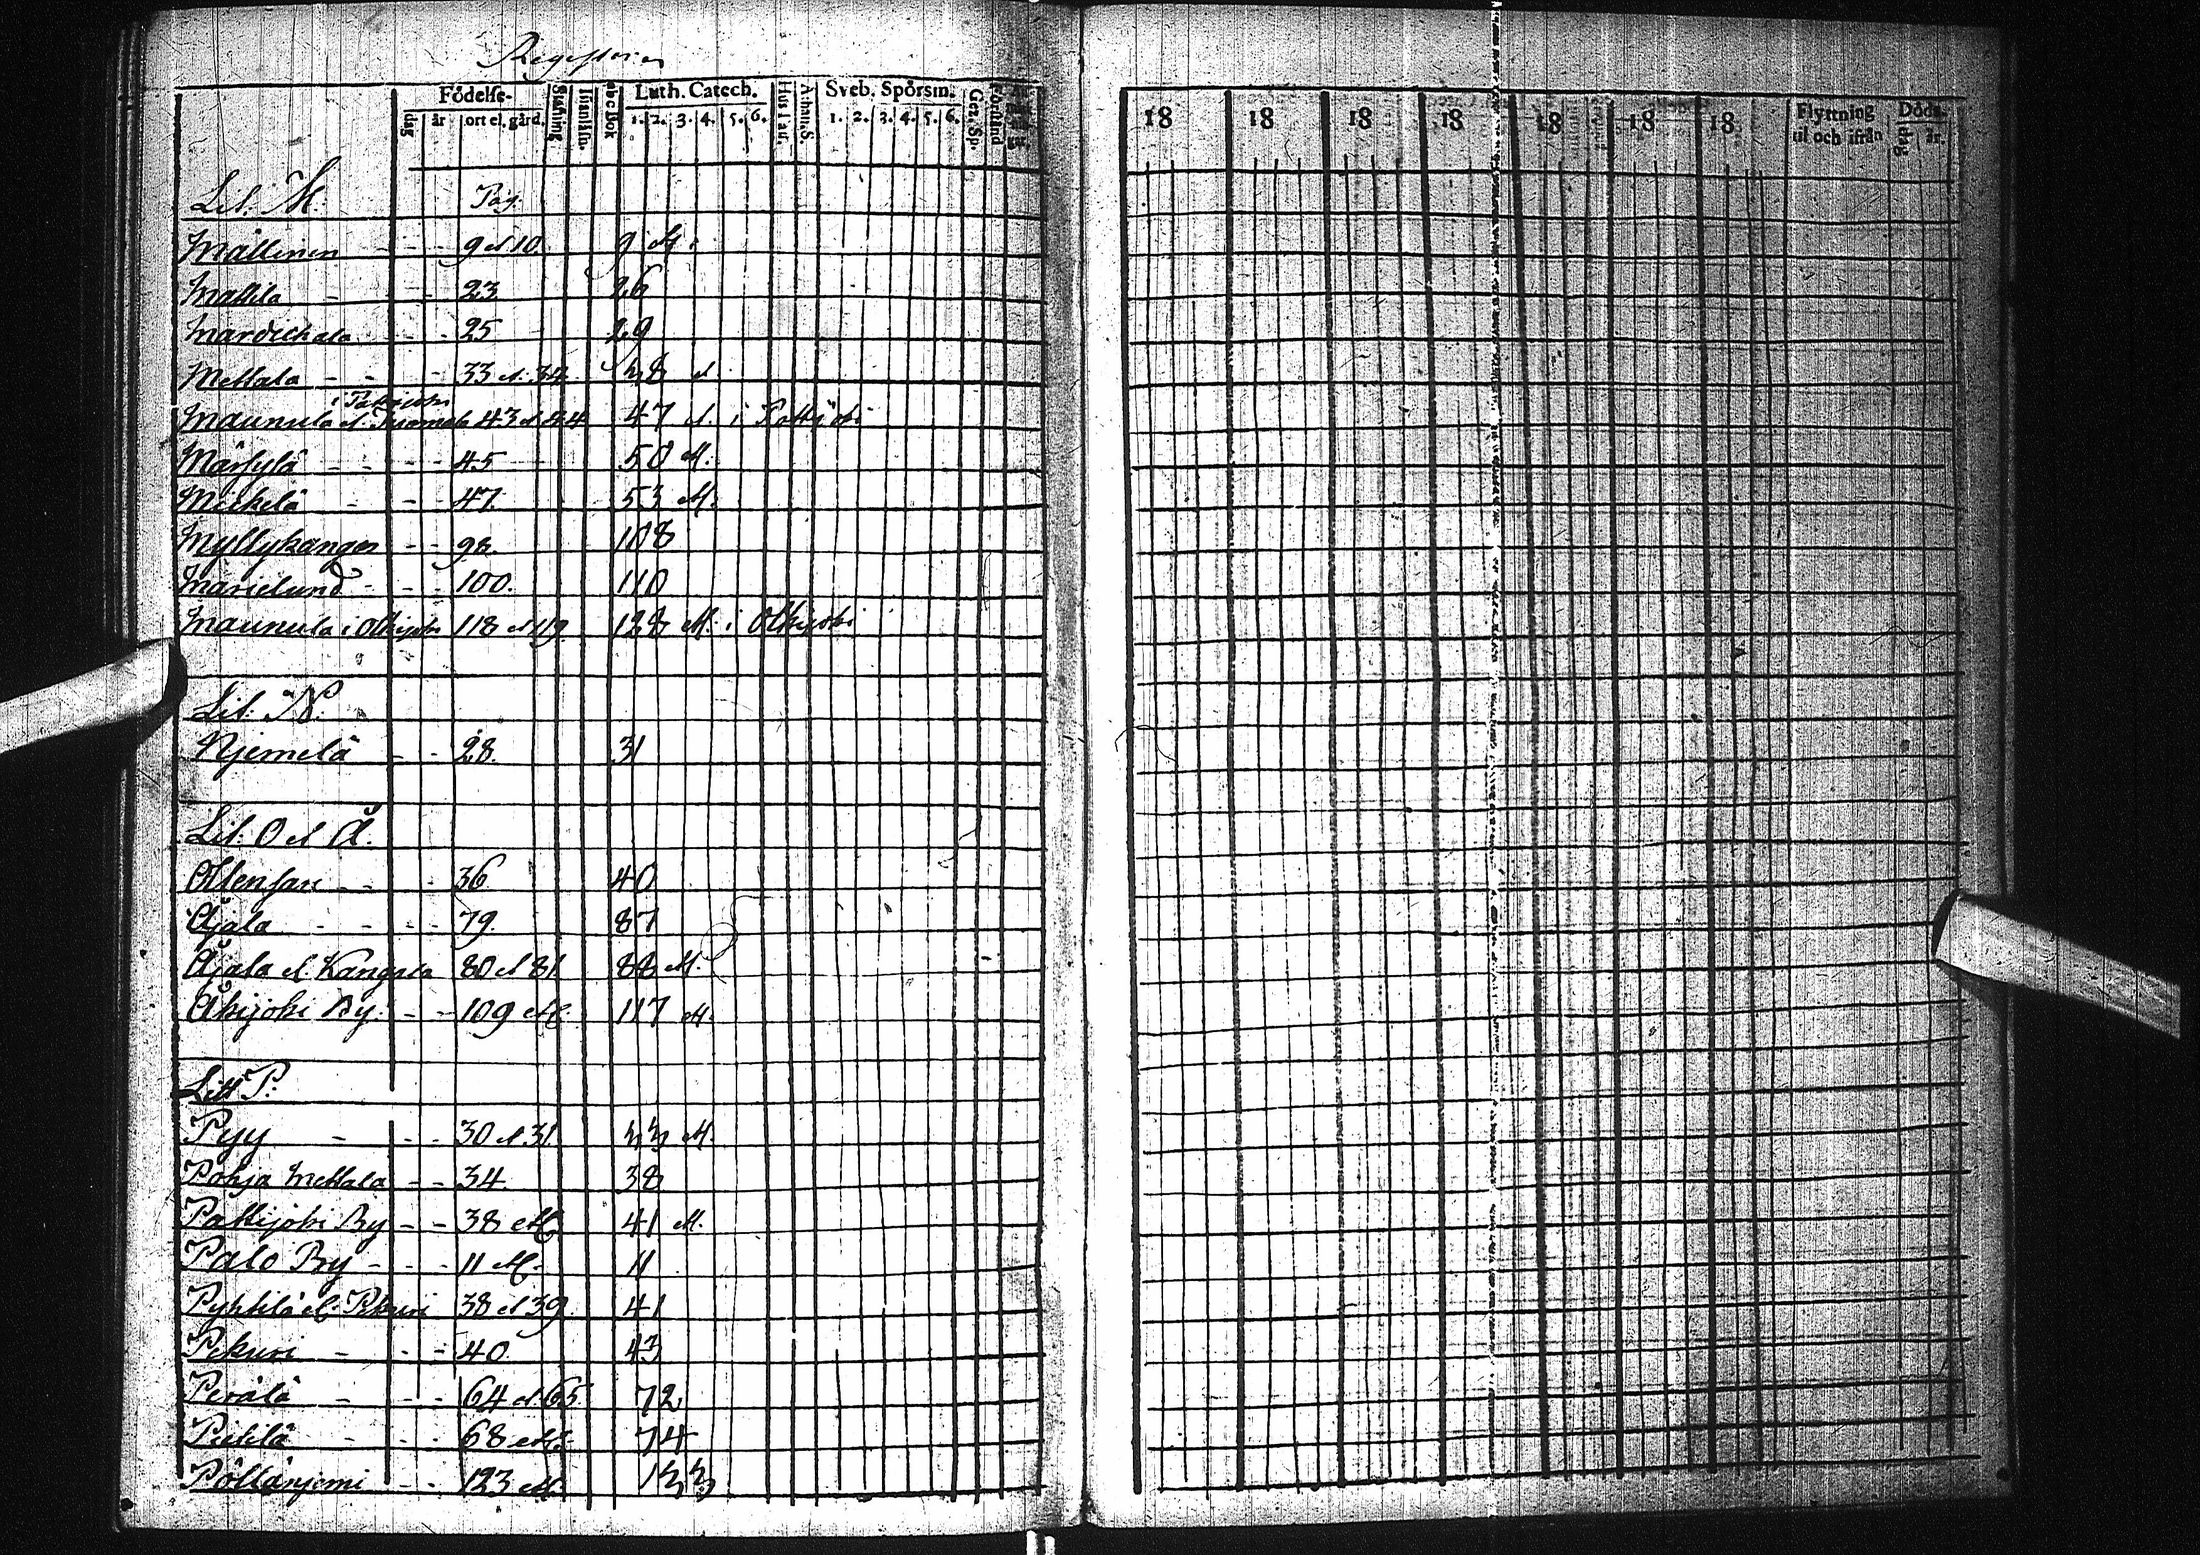 Register
Födelse- Luth. Catech. Sveb. Spörsm.
dag år ort el. gård. abc Bok 1. 2. 3. 4. 5. 6. Hus Taf. Athan. S. 1. 2. 3. 4. 5. 6. Gez. Sp. Förstånd
18 18 18 18 18 18 18 Flyttning til och ifrån Döds- dag år.
Lit. M. Pag.
Mällinen - - 9 et 10. 9 et
Mattila - - 23. 26
Mardickala - - 25 29
Mettala - - 33 et 34. 38 et
i Pattijoki
Maunula et Tuomela 43 et 44 47 et. i Pattijoki
Märsylä - - 45 50 et.
Mickelä - - 47. 53 et.
Myllykangas - - 98. 108
Marielund - - 100. 110
Maunula i Olkijoki 118 et 119. 128 et. i Olkijoki
Lit. N.
Njemelä - - 28. 31
Lit. O et Å.
Ollensari - - 36. 40
Åjala - - 79. 87
Åjala et Kangala 80 et 81. 88 et.
Åkijoki By. - - 109 et 117 et.
Litt P.
Pyy - - 30 et 31. 33 et.
Pohja Mettala - - 34. 38
Pattijoki By - - 38 et 41 et.
Palo By - - 11 et. 11
Pyhtilä et. Pekuri 38 et 39. 41
Pekuri - - 40. 43
Perälä - - 64 et 65. 72
Pietilä - - 68 et. 74
Pöllänjemi - - 123 et. 133